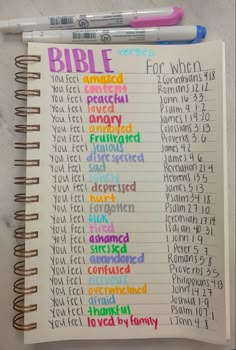 BIBLE verses
For when
You feel amazed 2 Corinthians 4:18
You feel content Romans 12:12
You feel peaceful John 16:33
You feel loved Psalm 9:1-2
You feel angry James 1:19-20
You feel annoyed Colossians 3:13
You feel frustrated Proverbs 3:6
You feel jealous James 4:2
You feel disrespected James 4:6
You feel sad Revelation 21:4
You feel lonely Hebrews 13:5
You feel depressed James 5:13
You feel hurt Psalm 34:18
You feel forgotten Psalm 27:10
You feel sick Jeremiah 17:14
You feel tired Isaiah 40:31
You feel ashamed 1 John 1:9
You feel stressed 1 Peter 5:7
You feel abandoned Romans 15:8
You feel confused Proverbs 3:5
You feel nervous Philippians 4:13
You feel overwhelmed John 14:27
You feel afraid Joshua 1:9
You feel thankful Psalm 107:1
You feel loved by family 1 John 4:8